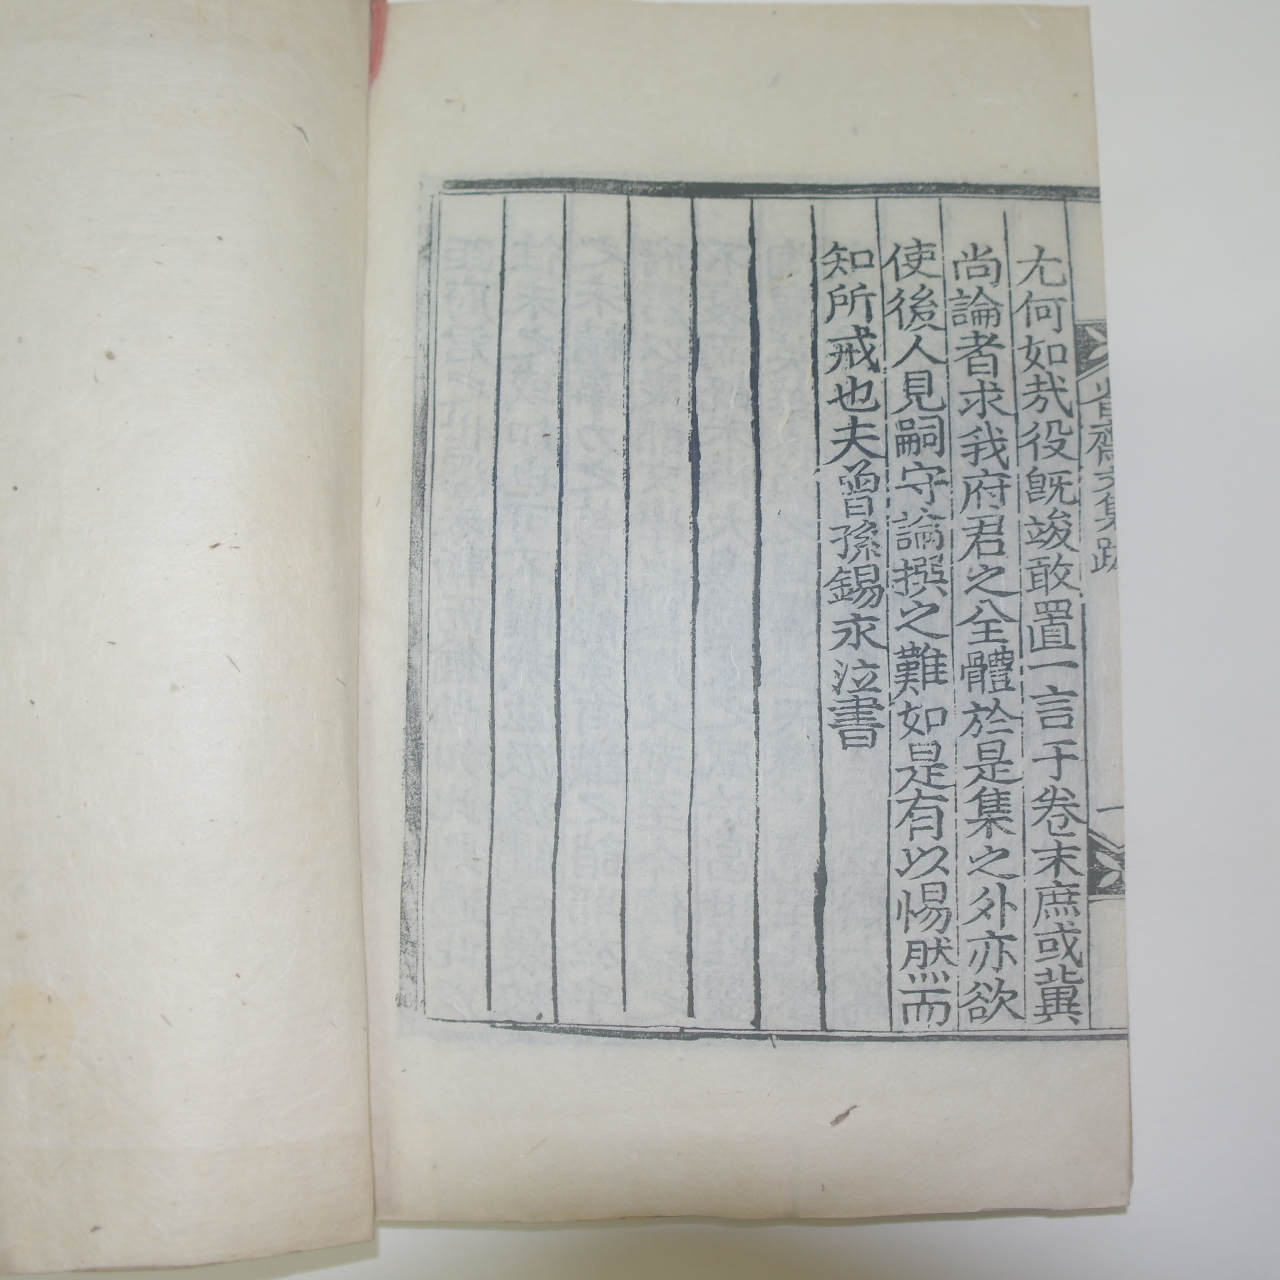 尤何如㢤役旣竣敢置一言于卷末庶或冀
尙論者求我府君之全體於是集之外亦欲
使後人見嗣守論撰之難如是有以惕然而
知所戒也夫曾孫錫永泣書
齋文集跋
一